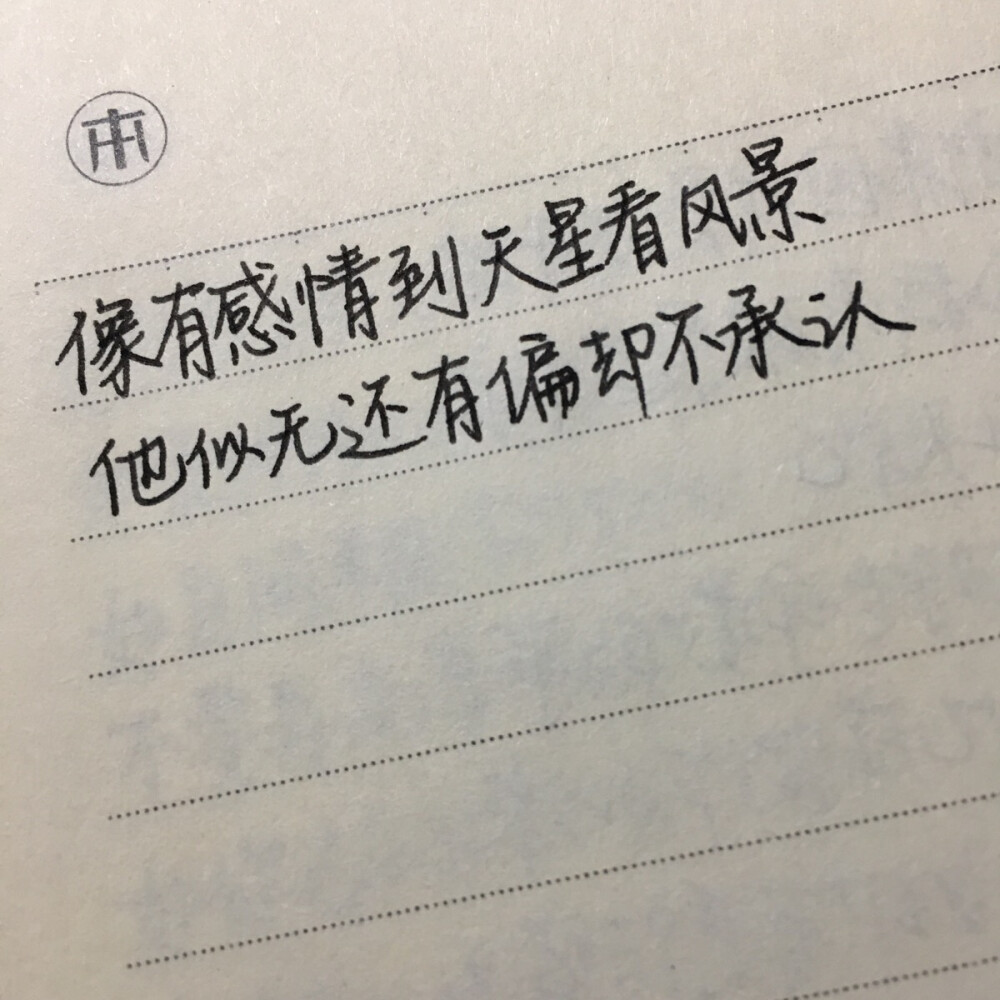 像有感情到天星看风景
他似无还有偏却不承认